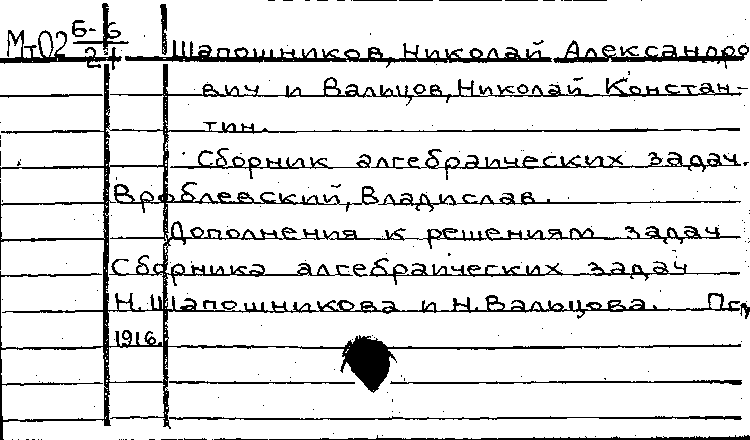 МтО2 Б-Б/21 Шапошников, Николай Александро
вич и Вальцов, Николай Констан-
тин.
Сборник алгебраических задач.
Вроблевский, Владислав.
Дополнения к решениям задач
Сборника алгебраических задач
Н. Шапошникова и Н. Вальцова. Пг,
1916.